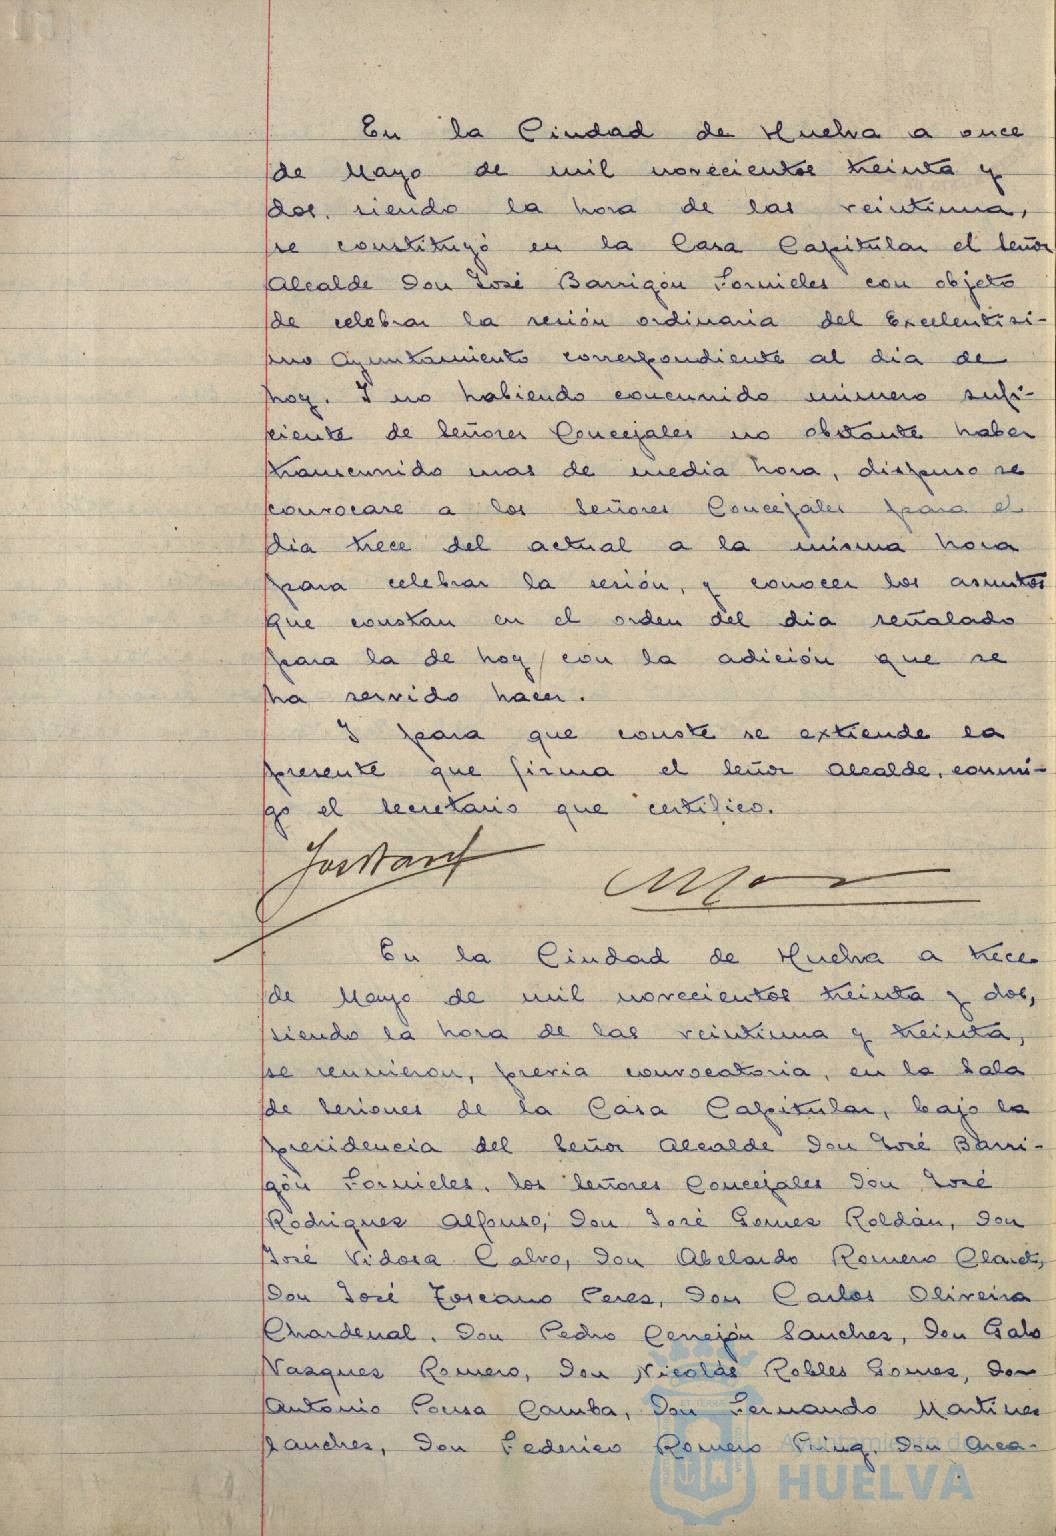 En la Ciudad de Huelva a once
de Mayo de mil novecientos treinta y
dos, siendo la hora de las veintiuna,
se constituyó en la Casa Capitular el Señor
Alcalde Don José Barrigón Fornieles con objeto
de celebrar la sesión ordinaria del Excelentísi-
mo Ayuntamiento correspondiente al día de
hoy. Y no habiendo concurrido número sufi-
ciente de Señores Concejales no obstante haber
transcurrido mas de media hora, dispuso se
convocase a los Señores Concejales para el
día trece del actual a la misma hora
para celebrar la sesión, y conocer los asuntos
que constan en el orden del día señalado
para la de hoy, con la adición que se
ha servido hacer.
Y para que conste se extiende la
presente que firma el Señor Alcalde, conmi-
go el Secretario que certifico.
En la Ciudad de Huelva a trece
de Mayo de mil novecientos treinta y dos,
siendo la hora de las veintiuna y treinta,
se reunieron, previa convocatoria, en la Sala
de Sesiones de la Casa Capitular, bajo la
presidencia del Señor Alcalde Don José Barri-
gón Fornieles, los Señores Concejales Don José
Rodriguez Alfonso, Don José Gomez Roldán, Don
José Vidosa Calvo, Don Abelardo Romero Claret,
Don José Toscano Perez, Don Carlos Oliveira
Chardenal, Don Pedro Cerrejón Sanchez, Don Galo
Vazquez Romero, Don Nicolás Robles Gomez, Don
Antonio Pousa Camba, Don Fernando Martinez
Sanchez, Don Federico Romero Don Arca-
Ayuntamiento de
HUELVA